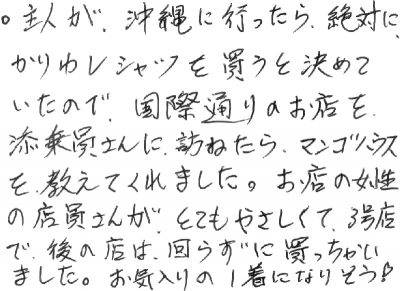 。主人が、沖縄に行ったら、絶対に、
かりゆしシャツを買うと決めて
いたので、国際通りのお店を、
添乗員さんに、訪ねたら、マンゴハウス
を、教えてくれました。お店の女性
の店員さんが、とてもやさしくて、3号店
で、後の店は、回らずに買っちゃい
ました。お気入りの1着になりそう!